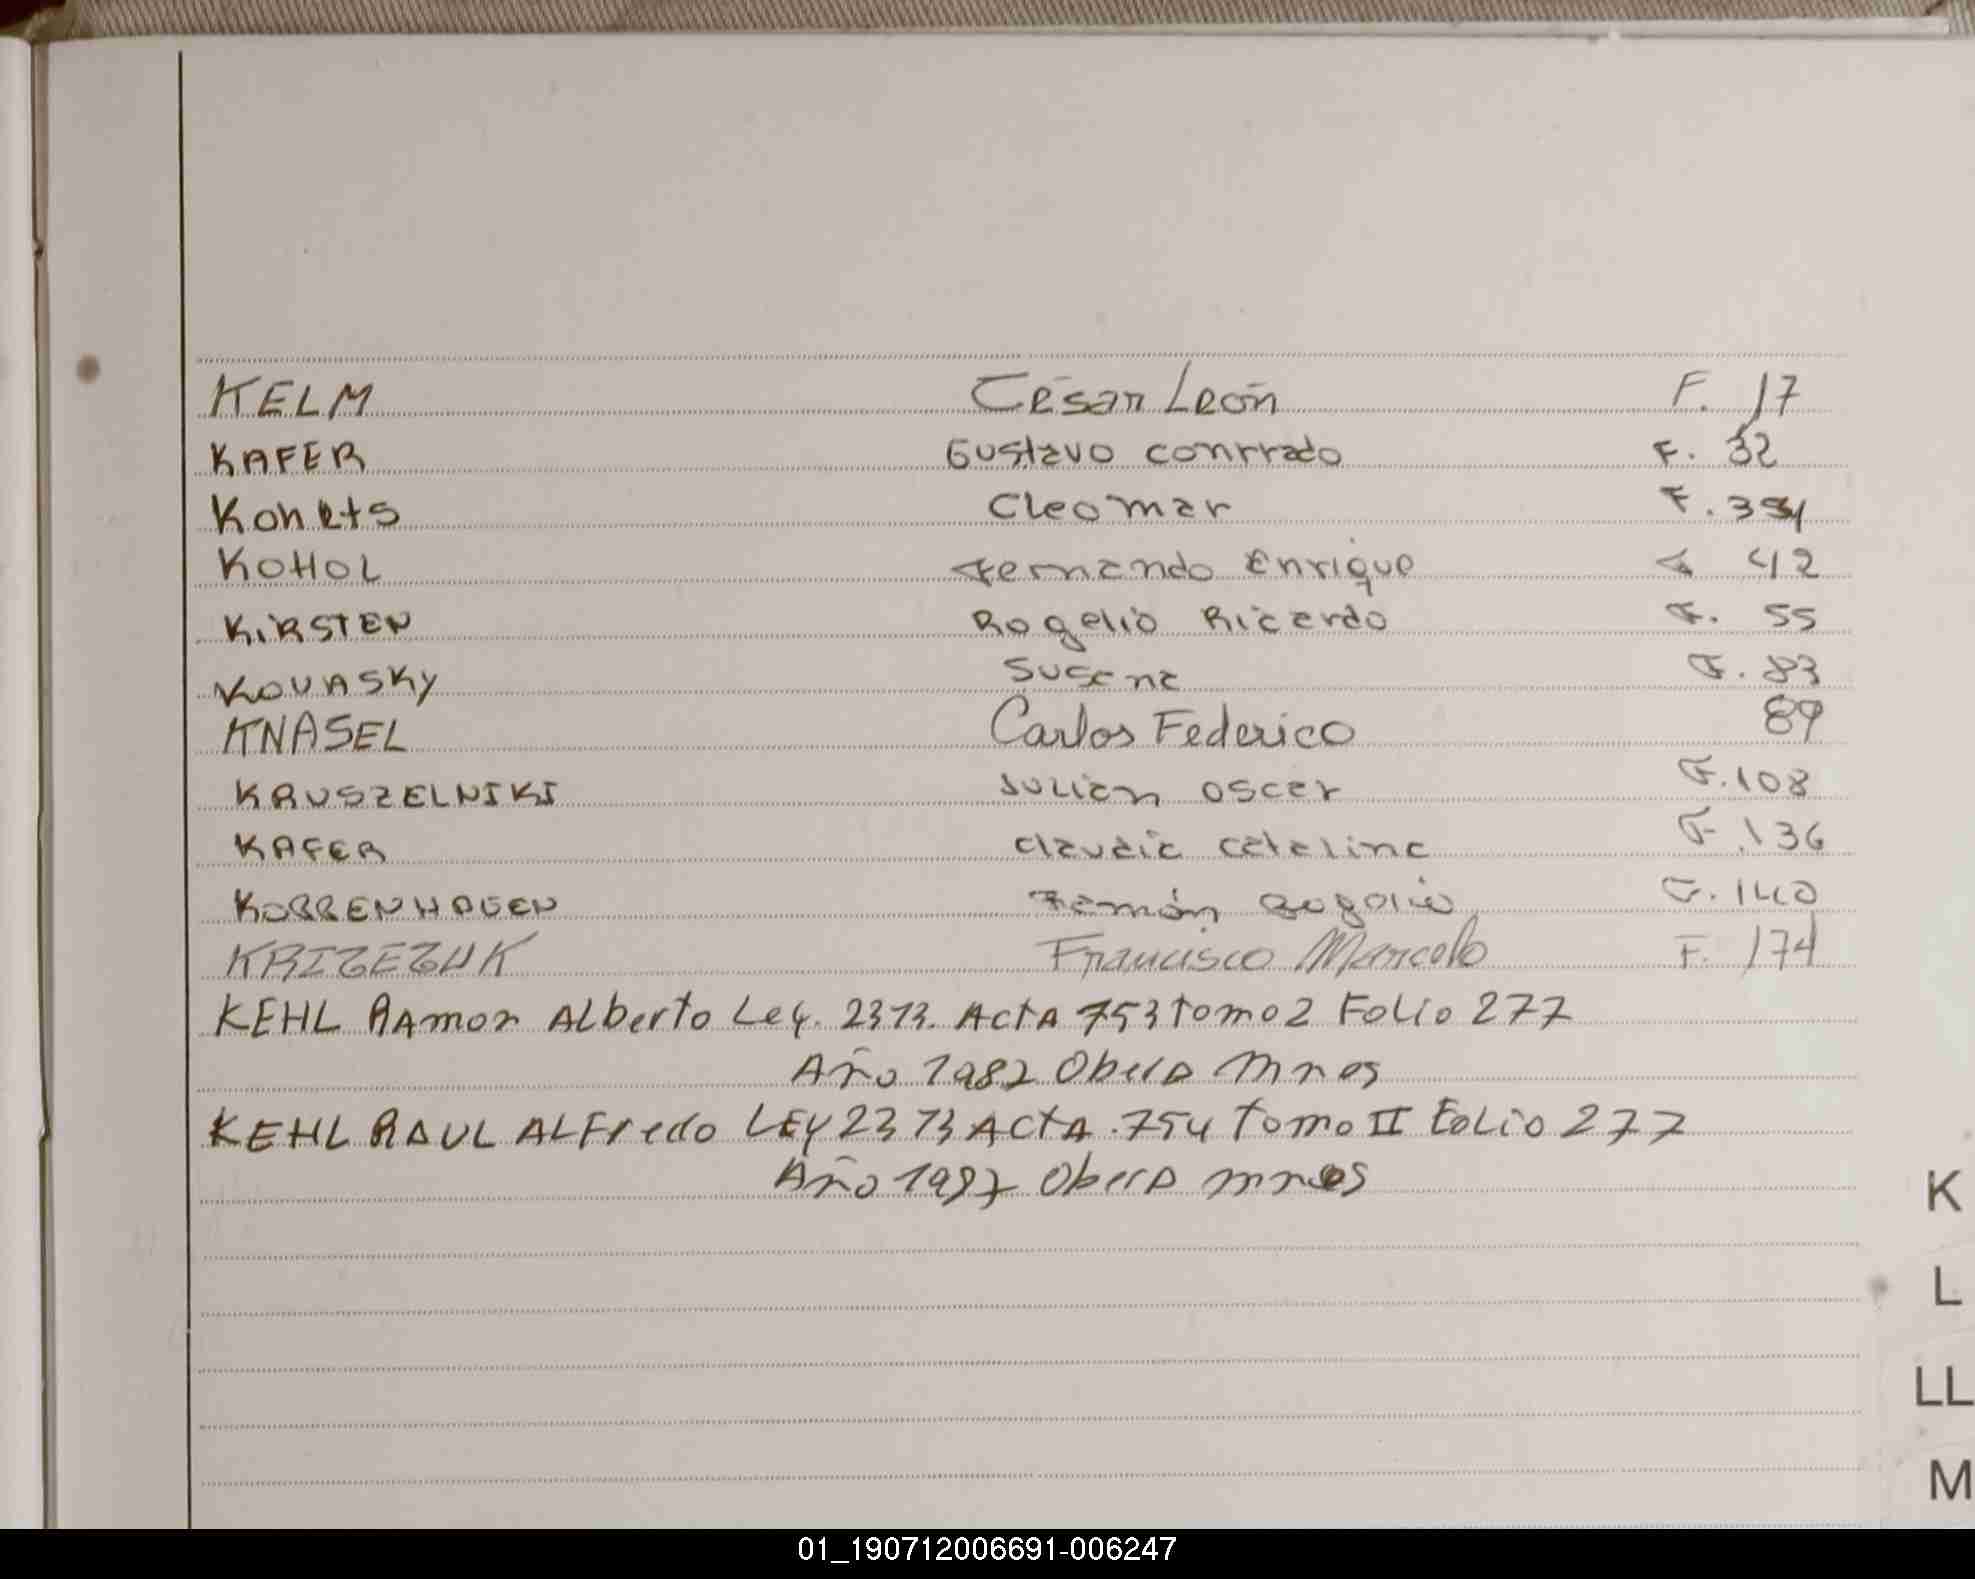 KELM César León F. 17
KAFER Gustavo conrrado F. 32
Konets Cleomar F.
KOHOL Fernando Enrique F 42
KIRSTEN Rogelio Ricardo F. 55
KOVASKY Susana F. 83
KNASEL Carlos Federico 89
KRUSZELNISKI Julian oscar F. 108
KAFER claudia catalina F. 136
KORRENHAGEN Ramón F. 140
KRIZEZUK Francisco Marcelo F. 174
KEHL RAmon ALberto Ley. 2373. ActA 753 tomo 2 Folio 277
Año 1982 Obera mnes
KEHL RAUL ALFredo LEy 2373 ActA. 754 Tomo II FoLio 277
Año 1982 Obera mnes
K
L
LL
M
01_190712006691-006247